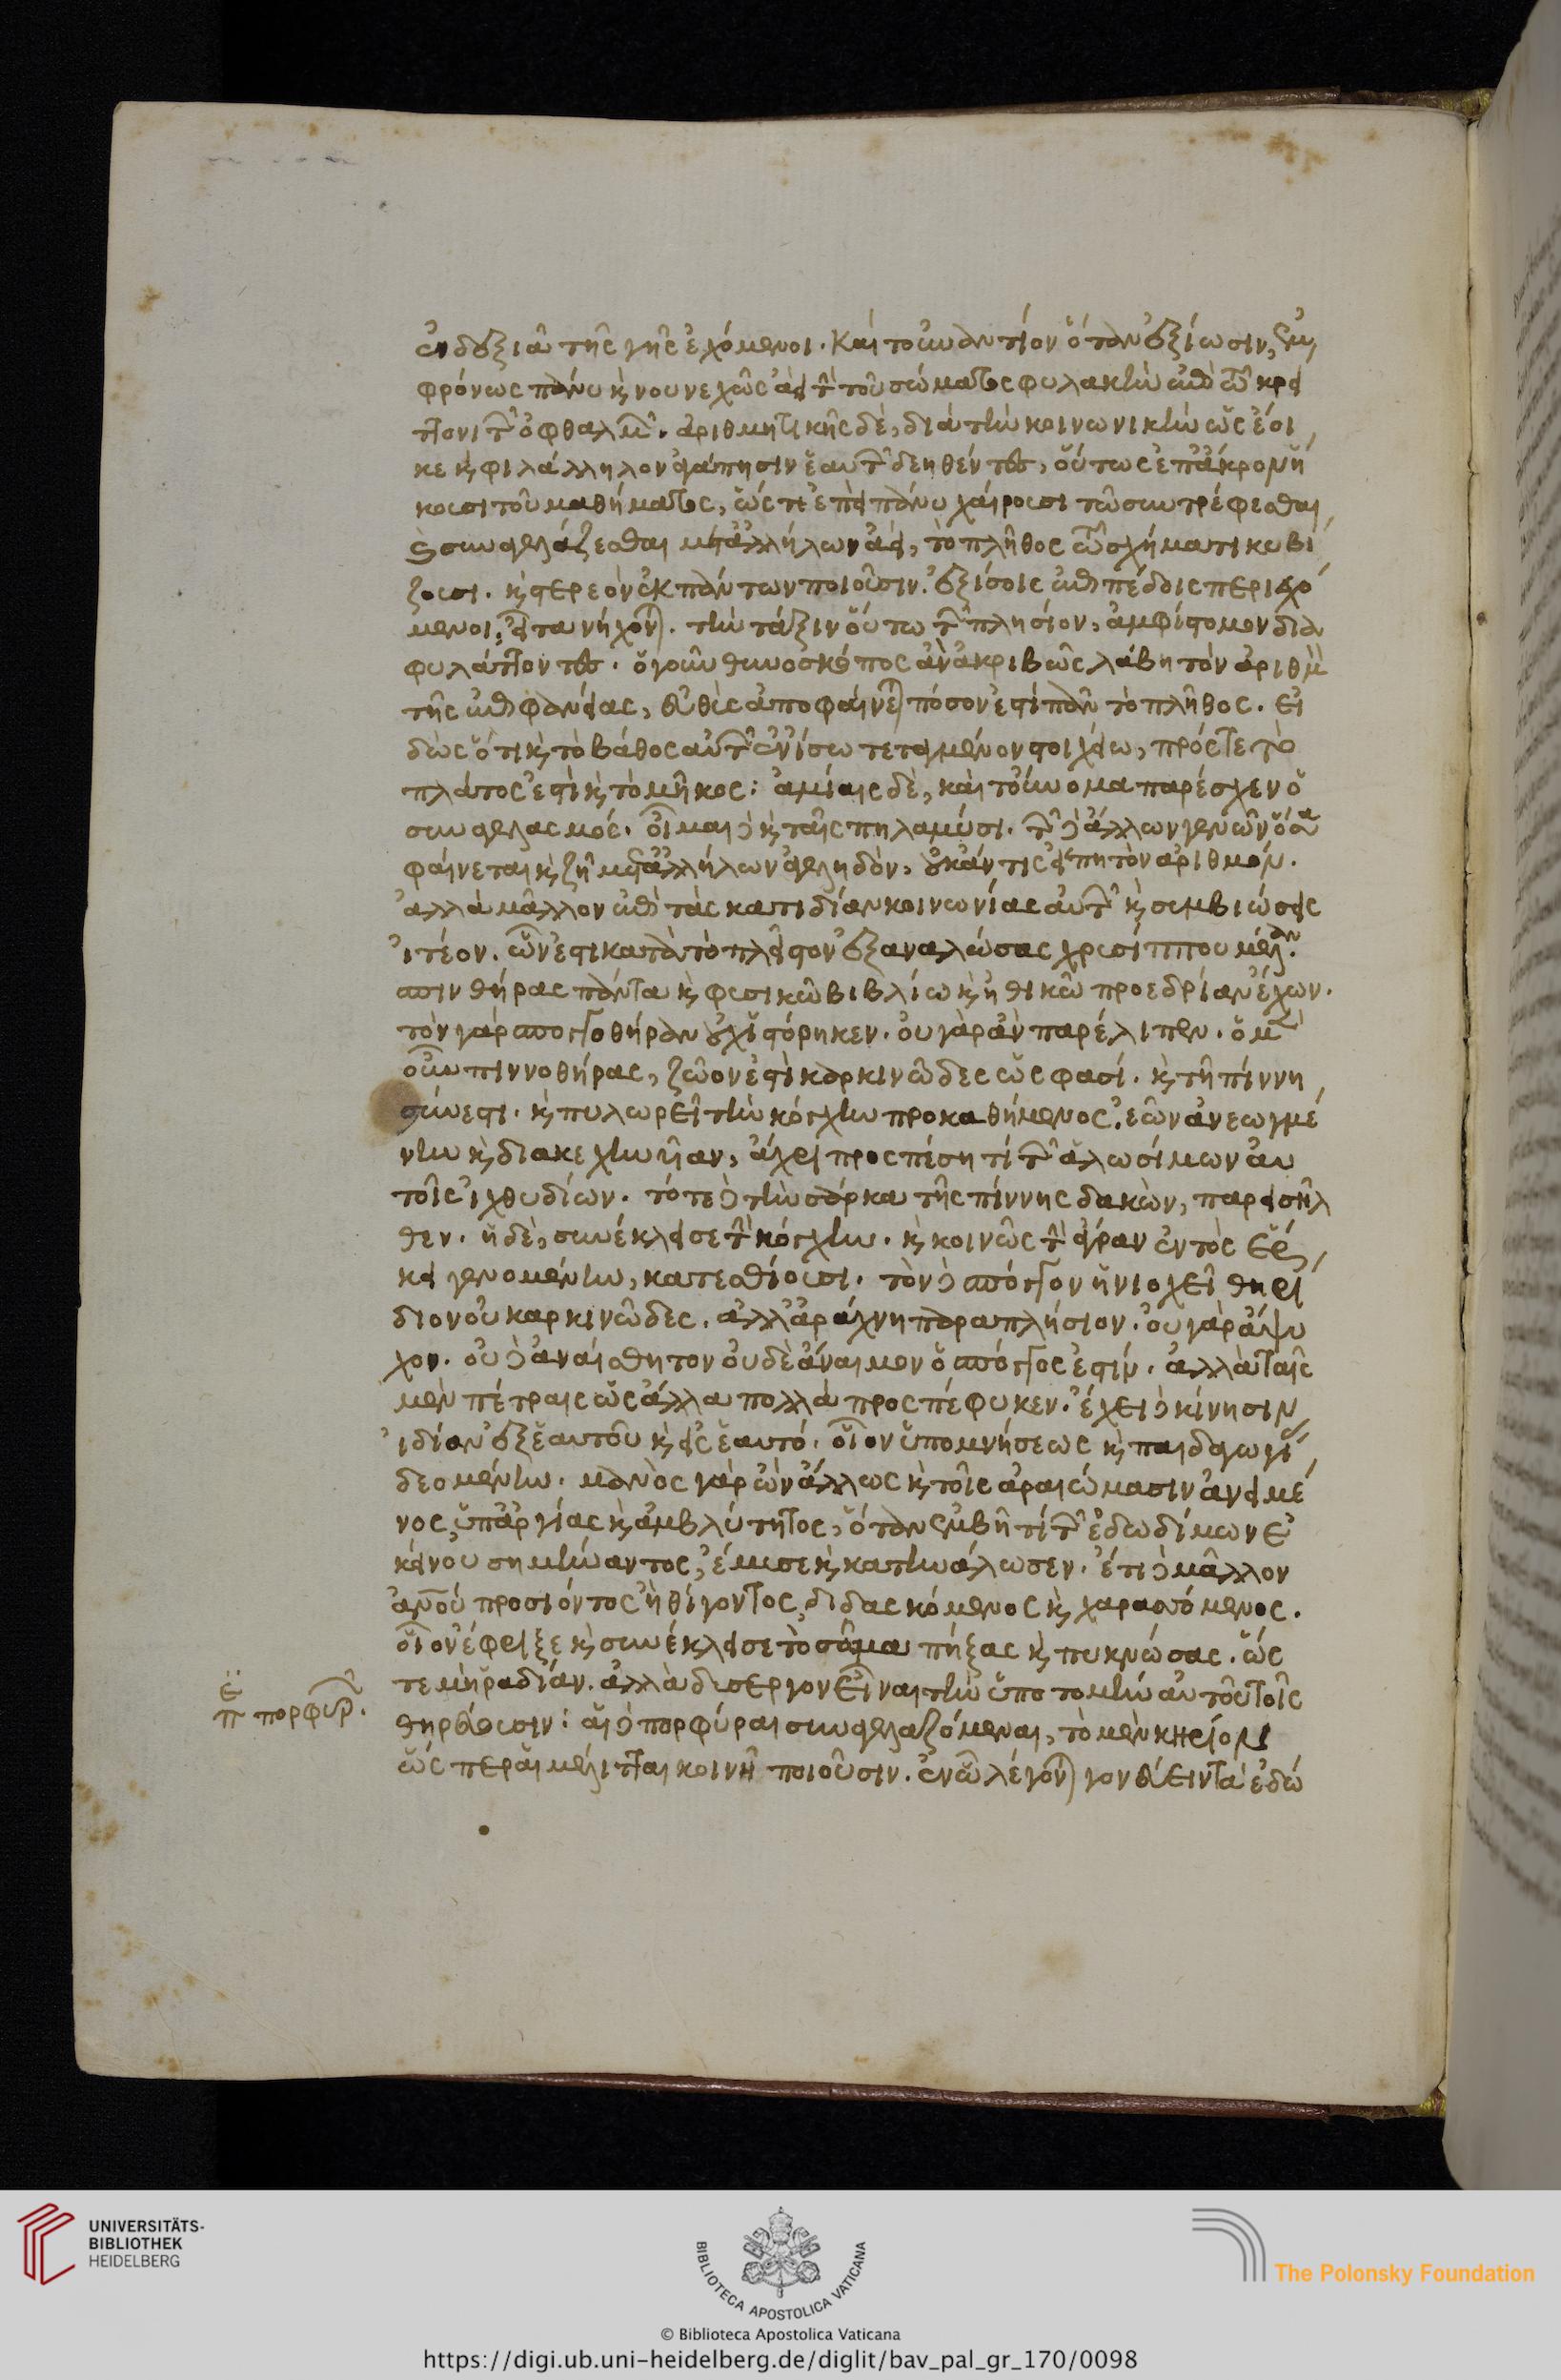 ἐν δεξιᾷ τῆς γῆς ἐχόμενοι. καὶ τοὐναντίον ὅταν ἐξίωσιν, ἐμ
φρόνως πάνυ κ̀ νουνεχῶς ἀεὶ τ̀ τοῦ σώματος φυλακὴν ἐπὶ τῷ κρεί
ττονι τῶν ὀφθαλμῶν. ἀριθμητικῆς δὲ, διὰ τὴν κοινωνικὴν ὡς ἔοι
κε κ̀ φιλάλληλον ἀγάπησιν ἑαυτῶν δεηθέντες, οὕτως ἐπ' ἄκρον ἥ
κουσι τοῦ μαθήματος, ὥστ' ἐπεὶ πάνυ χαίρουσι τῷ συντρέφεσθαι
κ̀ συναγελάζεσθαι μετ' ἀλλήλων ἀεὶ, τὸ πλῆθος τῷ σχήματι κυβί
ζουσι. κ̀ στερεὸν ἐκ πάντων ποιοῦσιν. ἐξ ἴσοις ἐπιπέδοις περιεχό
μενοι, εἶτα νήχονται. τὴν τάξιν οὕτω τῶν πλησίον, ἀμφίστομον δια
φυλάττοντες. ὁ γοῦν θυνοσκόπος ἂν ἀκριβῶς λάβῃ τὸν ἀριθμὸν
τῆς ἐπιφανείας, εὐθὺς ἀποφαίνεται πόσον ἐστὶ πᾶν τὸ πλῆθος. εἰ
δὼς ὅτι κ̀ τὸ βάθος αὐτῶν ἐν ἴσω τεταγμένον στοιχείω, πρός τε τὸ
πλάτος ἐστὶ κ̀ τὸ μῆκος: ἀμίαις δὲ, καὶ τοὔνομα παρέσχεν ὁ
συναγελασμός. οἶμαι δὲ κ̀ ταῖς πηλαμύσι. τῶν δὲ ἄλλων γενῶν ὅσα
φαίνεται κ̀ ζῆ μετ' ἀλλήλων ἀγεληδὸν, οὐκ ἄν τις εἴπῃ τὸν ἀριθμόν.
ἀλλὰ μᾶλλον ἐπὶ τὰς κατ ἰδίαν κοινωνίας αὐτῶν κ̀ συμβιώσεις
ἰτέον. ὧν ἐστι κατὰ τὸ πλεῖστον ἐξαναλώσας χρυσίππου μέλαν.
σπινθήρας πάντα κ̀ φυσικῶ βιβλίω κ̀ ἠθικῶ προεδρίαν ἔχων.
τὸν γὰρ σπογγοθήραν οὐχ ἱστόρηκεν. οὐ γὰρ ἂν παρέλιπεν. ὁ μὲν
οὖν πιννοθήρας, ζῶον ἐστὶ καρκινῶδες ὥς φασί. κ̀ τῆ πίννη
σύνεστι. κ̀ πυλωρεῖ τὴν κόγχην προκαθήμενος, ἐῶν ἀνεωγμέ
νην κ̀ διακεχηνῆαν, ἄχρι προσπέση τὶ τῶν ἁλωσίμων αὐ
τοῖς ἰχθυδίων. τότε δὲ τὴν σάρκα τῆς πίννης δακὼν, παρεισῆλ
θεν. ἡ δὲ, συνέκλεισε τ̀ κόγχην. κ̀ κοινῶς τ̀ ἄγραν ἐντὸς ἕρ
κει γενομένην, κατεσθίουσι. τὸν δὲ σπόγγον ἡνιοχεῖ θηρί
διον οὐ καρκινῶδες. ἀλλ' ἀράχνη παραπλήσιον. οὐ γὰρ ἄψυ
χον. οὐδ' ἀναίσθητον οὐδὲ ἄναιμον ὁ σπόγγος ἐστίν. ἀλλὰ ταῖς
μὲν πέτραις ὡς ἄλλα πολλὰ προσπέφυκεν. ἔχει δὲ κίνησιν
ἰδίαν ἐξ ἑαυτοῦ κ̀ εἰς ἑαυτό. οἷον ὑπομνήσεως κ̀ παιδαγωγί
δεομένην. μανὸς γὰρ ὢν ἄλλως κ̀ τοῖς ἀραιώμασιν ἀνειμέ
νος, ὑπ' ἀργίας κ̀ ἀμβλύτητος, ὅταν ἐμβῆ τί τῶν ἐδωδίμων ἐ
κείνου σημήναντος, ἔμυσε κ̀ κατηνάλωσεν. ἔτι δὲ μᾶλλον
ἀνοῦ προσιόντος ἢ θίγοντος, διδασκόμενος κ̀ χαρασσόμενος.
οἷον ἔφριξε κ̀ συνέκλεισε τὸ σῶμα πήξας κ̀ πυκνώσας. ὥς
τε μὴ ῥαδίαν. ἀλλὰ δύσεργον εἶναι τὴν ὑποτομὴν αὐτοῦ τοῖς
θηρεύουσιν: αἱ δὲ πορφύραι συναγελαζόμεναι, τὸ μὲν κηρίον
ὥσπερ αἱ μέλιτται κοινῆ ποιοῦσιν. ἐν ᾧ λέγονται γονεύειν τὰ ἐδώ
π πορφύρ.
UNIVERSITÄTS-
BIBLIOTHEK
HEIDELBERG
BIBLIOTECA APOSTOLICA VATICANA
The Polonsky Foundation
© Biblioteca Apostolica Vaticana
https://digi.ub.uni-heidelberg.de/diglit/bav_pal_gr_170/0098